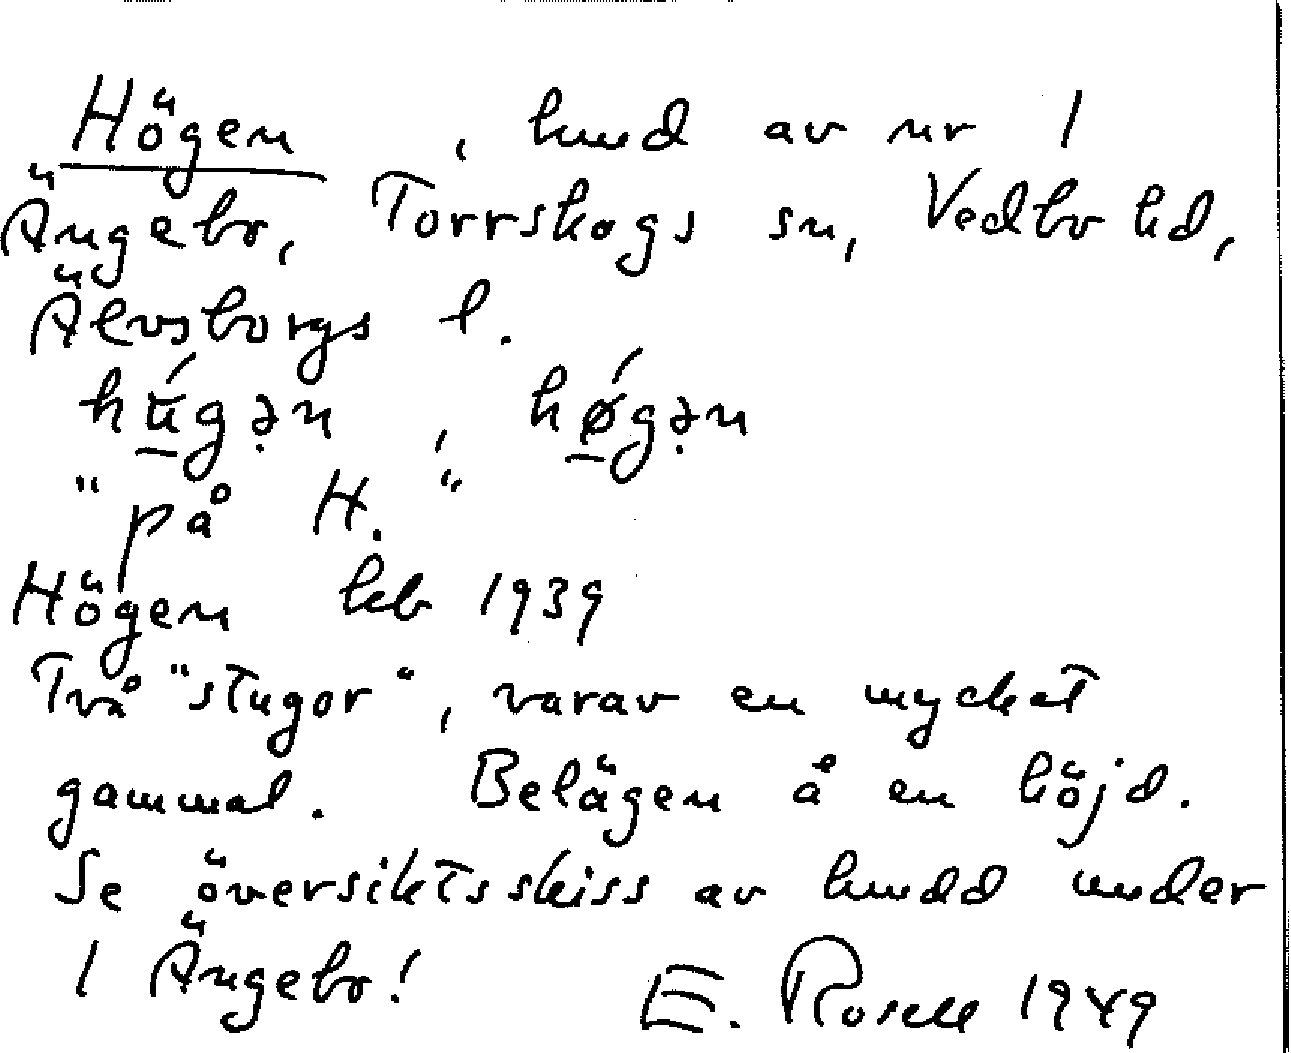 Högen , hmd av nr 1
Ängebo, Torrskogs sn, Vedbo hd,
Älvsborgs l.
hǘgə̣n , hǿgə̣n
"på H."
Högen kb 1939
Två "stugor", varav en mycket
gammal. Belägen å en höjd.
Se översiktsskiss av hmdd under
1 Ängebo!
E. Rosell 1949